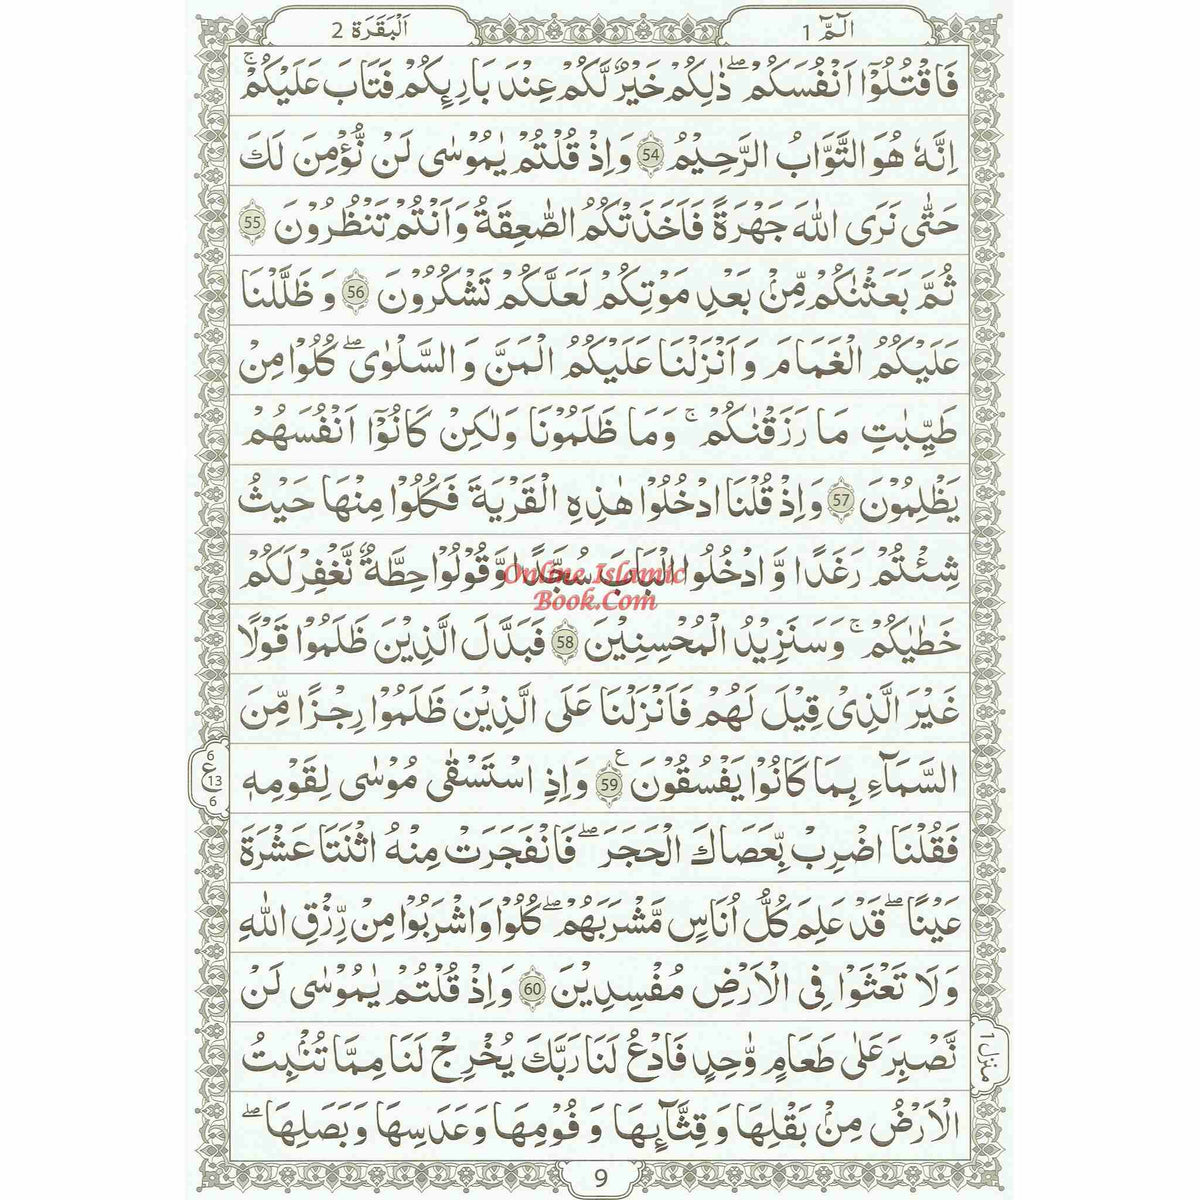 الٓمّٓ 1
اَلْبَقَرَة 2
فَاقْتُلُوْٓا اَنْفُسَكُمْ ؕ ذٰلِكُمْ خَيْرٌ لَّكُمْ عِنْدَ بَارِىِٕكُمْ فَتَابَ عَلَيْكُمْ ۚ
اِنَّهٗ هُوَ التَّوَّابُ الرَّحِيْمُ 54 وَاِذْ قُلْتُمْ يٰمُوْسٰى لَنْ نُّؤْمِنَ لَكَ
حَتّٰى نَرَى اللّٰهَ جَهْرَةً فَاَخَذَتْكُمُ الصّٰعِقَةُ وَاَنْتُمْ تَنْظُرُوْنَ 55
ثُمَّ بَعَثْنٰكُمْ مِّنْۢ بَعْدِ مَوْتِكُمْ لَعَلَّكُمْ تَشْكُرُوْنَ 56 وَ ظَلَّلْنَا
عَلَيْكُمُ الْغَمَامَ وَاَنْزَلْنَا عَلَيْكُمُ الْمَنَّ وَ السَّلْوٰى ۖ كُلُوْا مِنْ
طَيِّبٰتِ مَا رَزَقْنٰكُمْ ۚ وَمَا ظَلَمُوْنَا وَلٰكِنْ كَانُوْٓا اَنْفُسَهُمْ
يَظْلِمُوْنَ 57 وَاِذْ قُلْنَا ادْخُلُوْا هٰذِهِ الْقَرْيَةَ فَكُلُوْا مِنْهَا حَيْثُ
شِئْتُمْ رَغَدًا وَّ ادْخُلُوا الْبَابَ سُجَّدًا وَّقُوْلُوْا حِطَّةٌ نَّغْفِرْ لَكُمْ
Online Islamic
Book.Com
خَطٰيٰكُمْ ۚ وَسَنَزِيْدُ الْمُحْسِنِيْنَ 58 فَبَدَّلَ الَّذِيْنَ ظَلَمُوْا قَوْلًا
غَيْرَ الَّذِىْ قِيْلَ لَهُمْ فَاَنْزَلْنَا عَلَى الَّذِيْنَ ظَلَمُوْا رِجْزًا مِّنَ
السَّمَآءِ بِمَا كَانُوْا يَفْسُقُوْنَ ع 59 وَاِذِ اسْتَسْقٰى مُوْسٰى لِقَوْمِهٖ
6
ع
13
6
فَقُلْنَا اضْرِبْ بِّعَصَاكَ الْحَجَرَ ۖ فَانْفَجَرَتْ مِنْهُ اثْنَتَا عَشْرَةَ
عَيْنًا ۖ قَدْ عَلِمَ كُلُّ اُنَاسٍ مَّشْرَبَهُمْ ۖ كُلُوْا وَاشْرَبُوْا مِنْ رِّزْقِ اللّٰهِ
وَلَا تَعْثَوْا فِى الْاَرْضِ مُفْسِدِيْنَ 60 وَاِذْ قُلْتُمْ يٰمُوْسٰى لَنْ
نَّصْبِرَ عَلٰى طَعَامٍ وَّاحِدٍ فَادْعُ لَنَا رَبَّكَ يُخْرِجْ لَنَا مِمَّا تُنْۢبِتُ
منزل 1
الْاَرْضُ مِنْۢ بَقْلِهَا وَ قِثَّآىِٕهَا وَ فُوْمِهَا وَعَدَسِهَا وَبَصَلِهَا ۖ
9